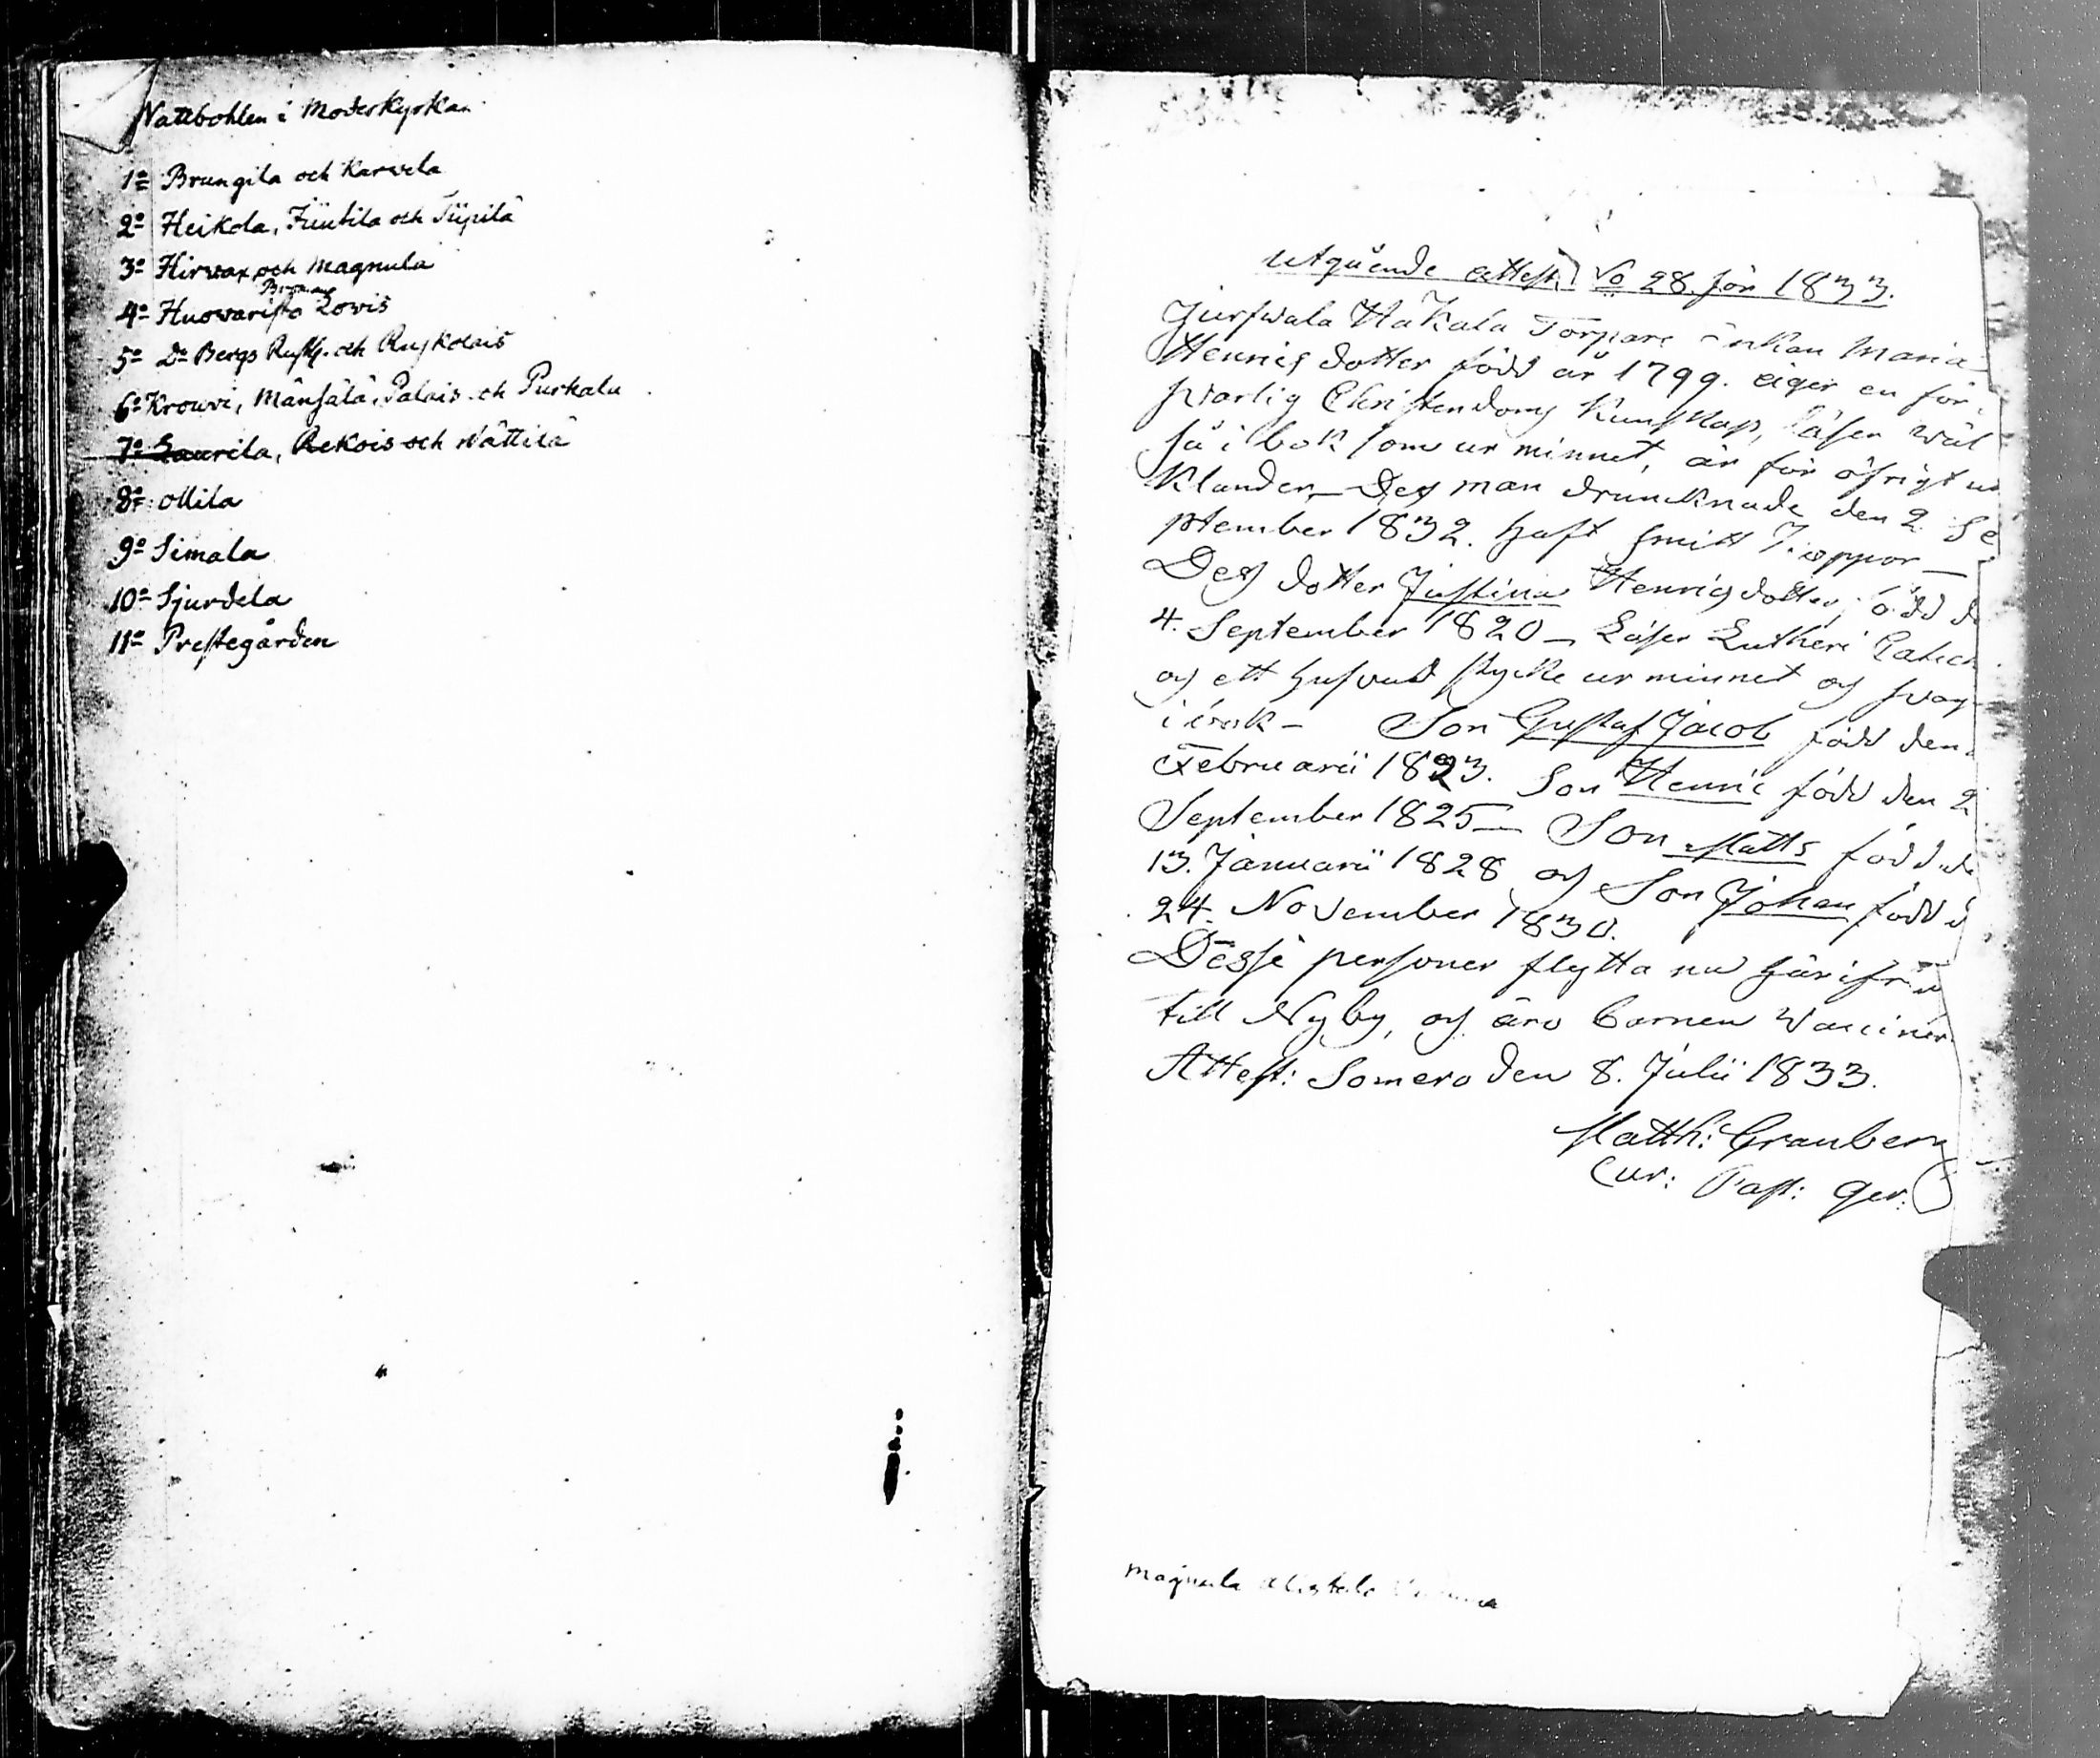 Nattbohlen i Moderkyrkan
1º Brungila och Karvela
2º Heikola, Juntila och Tüpilä
3º Hirvax och Magnula
4º Huovaristo Lovis
5º Dº Bergs Rusth. och Ruskolais
6º Krouvi, Mänsälä, Palais och Purkala
7º Laurila, Rekois och Nättilä
8º Ollila
9º Simala
10º Sjurdela
11º Prestegården
Utgående attest No 28. för 1833.
Hakala Torpare Enkan Maria
Henricsdotter född år 1799. äger en för-
svarlig Christendoms Kunskap, läser wäl
så i bok som ur minnet, är för öfrigt
klander— Des man drunknade den 2 Se
ptember 1832. haft smitt koppor—
Des dotter Justina Henricsdotter, född d
4. September 1820— Läser Lutheri Catech
och ett hufvud stycke ur minnet och svag
i bok— Son Gustaf Jacob född den
Februarii 1823. Son Henric född den 2
September 1825— Son Matts född d
13. Januarii 1828 och Son Johan född d
24. November 1830.
Desse personer flytta nu härifrån
till Nyby, och äro barnen Vacciner
Attest: Somero den 8. Julii 1833.
Matth: Granberg
Cur: Past: Ger:
Magnula Alistalo